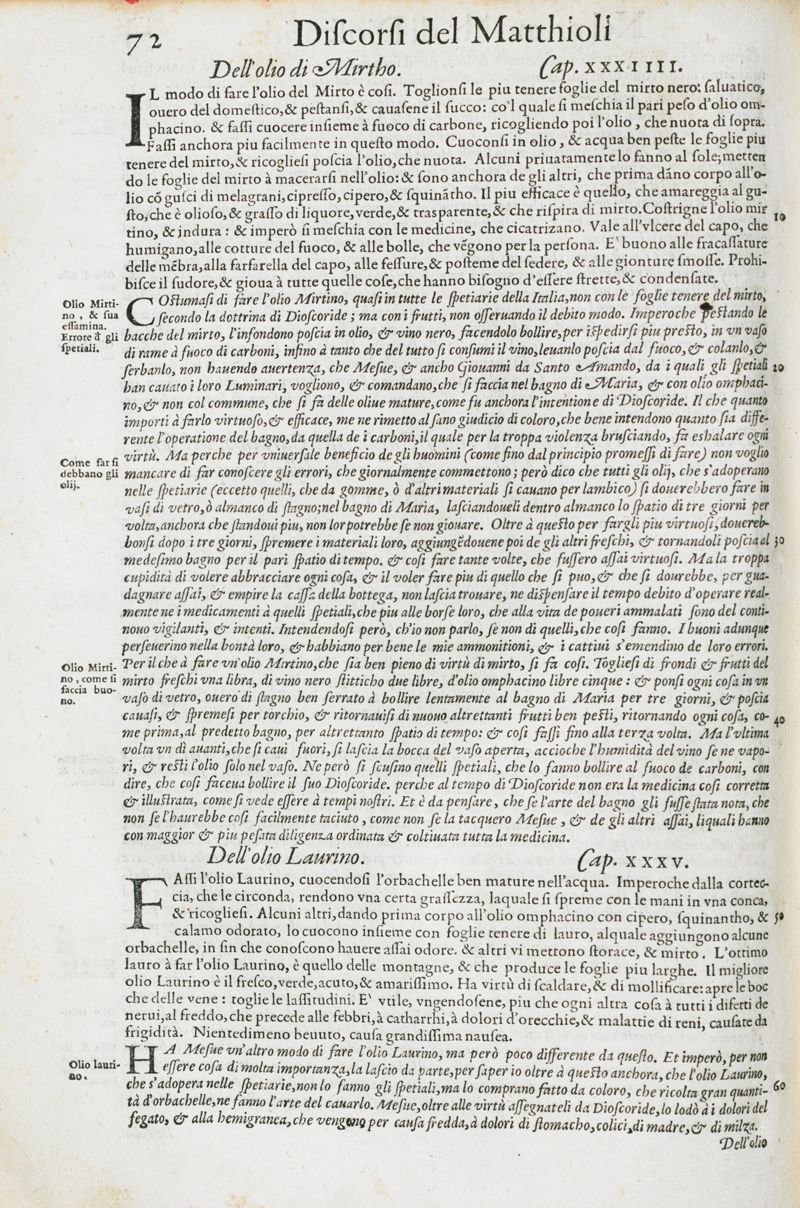 72
Diſcorſi del Matthioli
Dell'olio di Mirtho. Cap. XXXIIII.
IL modo di fare l'olio del Mirto è coſi. Toglionſi le piu tenere foglie del mirto nero: ſaluatico,
ouero del domeſtico, & peſtanſi, & cauaſene il ſucco: co'l quale ſi meſchia il pari peſo d'olio om-
phacino. & faſſi cuocere inſieme à fuoco di carbone, ricogliendo poi l'olio, che nuota di ſopra.
Faſſi anchora piu facilmente in queſto modo. Cuoconſi in olio, & acqua ben peſte le foglie piu
tenere del mirto, & ricoglieſi poſcia l'olio, che nuota. Alcuni priuatamente lo fanno al ſole; metten
do le foglie del mirto à macerarſi nell'olio: & ſono anchora de gli altri, che prima dāno corpo all'o-
lio cō guſci di melagrani, cipreſſo, cipero, & ſquinātho. Il piu efficace è quello, che amareggia al gu-
ſto, che è olioſo, & graſſo di liquore, verde, & traſparente, & che riſpira di mirto. Coſtrigne l'olio mir 10
tino, & indura: & imperò ſi meſchia con le medicine, che cicatrizano. Vale all'vlcere del capo, che
humigano, alle cotture del fuoco, & alle bolle, che vēgono per la perſona. E' buono alle fracaſſature
delle mēbra, alla farfarella del capo, alle feſſure, & poſteme del ſedere, & alle gionture ſmoſſe. Prohi-
biſce il ſudore, & gioua à tutte quelle coſe, che hanno biſogno d'eſſere ſtrette, & condenſate.
Olio Mirti-
no, & ſua
eſſamina.
Errore d gli
ſpetiali.
COſtumaſi di fare l'olio Mirtino, quaſi in tutte le ſpetiarie della Italia, non con le foglie tenere del mirto,
ſecondo la dottrina di Dioſcoride; ma con i frutti, non oſſeruando il debito modo. Imperoche peſtando le
bacche del mirto, l'infondono poſcia in olio, & vino nero, facendolo bollire, per iſpedirſi piu preſto, in vn vaſo
di rame à fuoco di carboni, infino à tanto che del tutto ſi conſumi il vino, leuanlo poſcia dal fuoco, & colanlo, &
ſerbanlo, non hauendo auertenza, che Meſue, & ancho Giouanni da Santo Amando, da i quali gli ſpetiali 20
han cauato i loro Luminari, vogliono, & comandano, che ſi faccia nel bagno di Maria, & con olio omphaci-
no, & non col commune, che ſi fa delle oliue mature, come fu anchora l'intentione di Dioſcoride. Il che quanto
importi à farlo virtuoſo, & efficace, me ne rimetto al ſano giudicio di coloro, che bene intendono quanto ſia diffe-
rente l'operatione del bagno, da quella de i carboni, il quale per la troppa violenza bruſciando, fa eshalare ogni
Come far ſi
debbano gli
olij.
virtù. Ma perche per vniuerſale beneficio de gli huomini (come fino dal principio promeſſi di fare) non voglio
mancare di far conoſcere gli errori, che giornalmente commettono; però dico che tutti gli olij, che s'adoperano
nelle ſpetiarie (eccetto quelli, che da gomme, ò d'altri materiali ſi cauano per lambico) ſi douerebbero fare in
vaſi di vetro, ò almanco di ſtagno; nel bagno di Maria, laſciandoueli dentro almanco lo ſpatio di tre giorni per
volta, anchora che ſtandoui piu, non lor potrebbe ſe non giouare. Oltre à queſto per fargli piu virtuoſi, douereb-
bonſi dopo i tre giorni, ſpremere i materiali loro, aggiungēdouene poi de gli altri freſchi, & tornandoli poſcia al 30
medeſimo bagno per il pari ſpatio di tempo. & coſi fare tante volte, che fuſſero aſſai virtuoſi. Ma la troppa
cupidità di volere abbracciare ogni coſa, & il voler fare piu di quello che ſi puo, & che ſi dourebbe, per gua-
dagnare aſſai, & empire la caſſa della bottega, non laſcia trouare, ne diſpenſare il tempo debito d'operare real-
mente ne i medicamenti à quelli ſpetiali, che piu alle borſe loro, che alla vita de poueri ammalati ſono del conti-
nouo vigilanti, & intenti. Intendendoſi però, ch'io non parlo, ſe non di quelli, che coſi fanno. I buoni adunque
perſeuerino nella bontà loro, & habbiano per bene le mie ammonitioni, & i cattiui s'emendino de loro errori.
Olio Mirti-
no, come ſi
faccia buo-
no.
Per il che à fare vn'olio Mirtino, che ſia ben pieno di virtù di mirto, ſi fa coſi. Toglieſi di frondi & frutti del
mirto freſchi vna libra, di vino nero ſtitticho due libre, d'olio omphacino libre cinque: & ponſi ogni coſa in vn
vaſo di vetro, ouero di ſtagno ben ſerrato à bollire lentamente al bagno di Maria per tre giorni, & poſcia
cauaſi, & ſpremeſi per torchio, & ritornauiſi di nuouo altrettanti frutti ben peſti, ritornando ogni coſa, co- 40
me prima, al predetto bagno, per altrettanto ſpatio di tempo: & coſi faſſi fino alla terza volta. Ma l'vltima
volta vn dì auanti, che ſi caui fuori, ſi laſcia la bocca del vaſo aperta, accioche l'humidità del vino ſe ne vapo-
ri, & reſti l'olio ſolo nel vaſo. Ne però ſi ſcuſino quelli ſpetiali, che lo fanno bollire al fuoco de carboni, con
dire, che coſi faceua bollire il ſuo Dioſcoride. perche al tempo di Dioſcoride non era la medicina coſi corretta
& illuſtrata, come ſi vede eſſere à tempi noſtri. Et è da penſare, che ſe l'arte del bagno gli fuſſe ſtata nota, che
non ſe l'haurebbe coſi facilmente taciuto, come non ſe la tacquero Meſue, & de gli altri aſſai, liquali hanno
con maggior & piu peſata diligenza ordinata & coltiuata tutta la medicina.
Dell'olio Laurino. Cap. XXXV.
FAſſi l'olio Laurino, cuocendoſi l'orbachelle ben mature nell'acqua. Imperoche dalla cortec-
cia, che le circonda, rendono vna certa graſſezza, laquale ſi ſpreme con le mani in vna conca,
& ricoglieſi. Alcuni altri, dando prima corpo all'olio omphacino con cipero, ſquinantho, & 50
calamo odorato, lo cuocono inſieme con foglie tenere di lauro, alquale aggiungono alcune
orbachelle, in fin che conoſcono hauere aſſai odore. & altri vi mettono ſtorace, & mirto. L'ottimo
lauro à far l'olio Laurino, è quello delle montagne, & che produce le foglie piu larghe. Il migliore
olio Laurino è il freſco, verde, acuto, & amariſſimo. Ha virtù di ſcaldare, & di mollificare: apre le boc
che delle vene: toglie le laſſitudini. E' vtile, vngendoſene, piu che ogni altra coſa à tutti i difetti de
nerui, al freddo, che precede alle febbri, à catharrhi, à dolori d'orecchie, & malattie di reni, cauſate da
frigidità. Nientedimeno beuuto, cauſa grandiſſima nauſea.
Olio lauri-
no.
HA Meſue vn'altro modo di fare l'olio Laurino, ma però poco differente da queſto. Et imperò, per non
eſſere coſa di molta importanza, la laſcio da parte, per ſaper io oltre à queſto anchora, che l'olio Laurino,
che s'adopera nelle ſpetiarie, non lo fanno gli ſpetiali, ma lo comprano fatto da coloro, che ricolta gran quanti- 60
tà d'orbachelle, ne fanno l'arte del cauarlo. Meſue, oltre alle virtù aſſegnateli da Dioſcoride, lo lodò à i dolori del
fegato, & alla hemigranea, che vengono per cauſa fredda, à dolori di ſtomacho, colici, di madre, & di milza.
Dell'olio